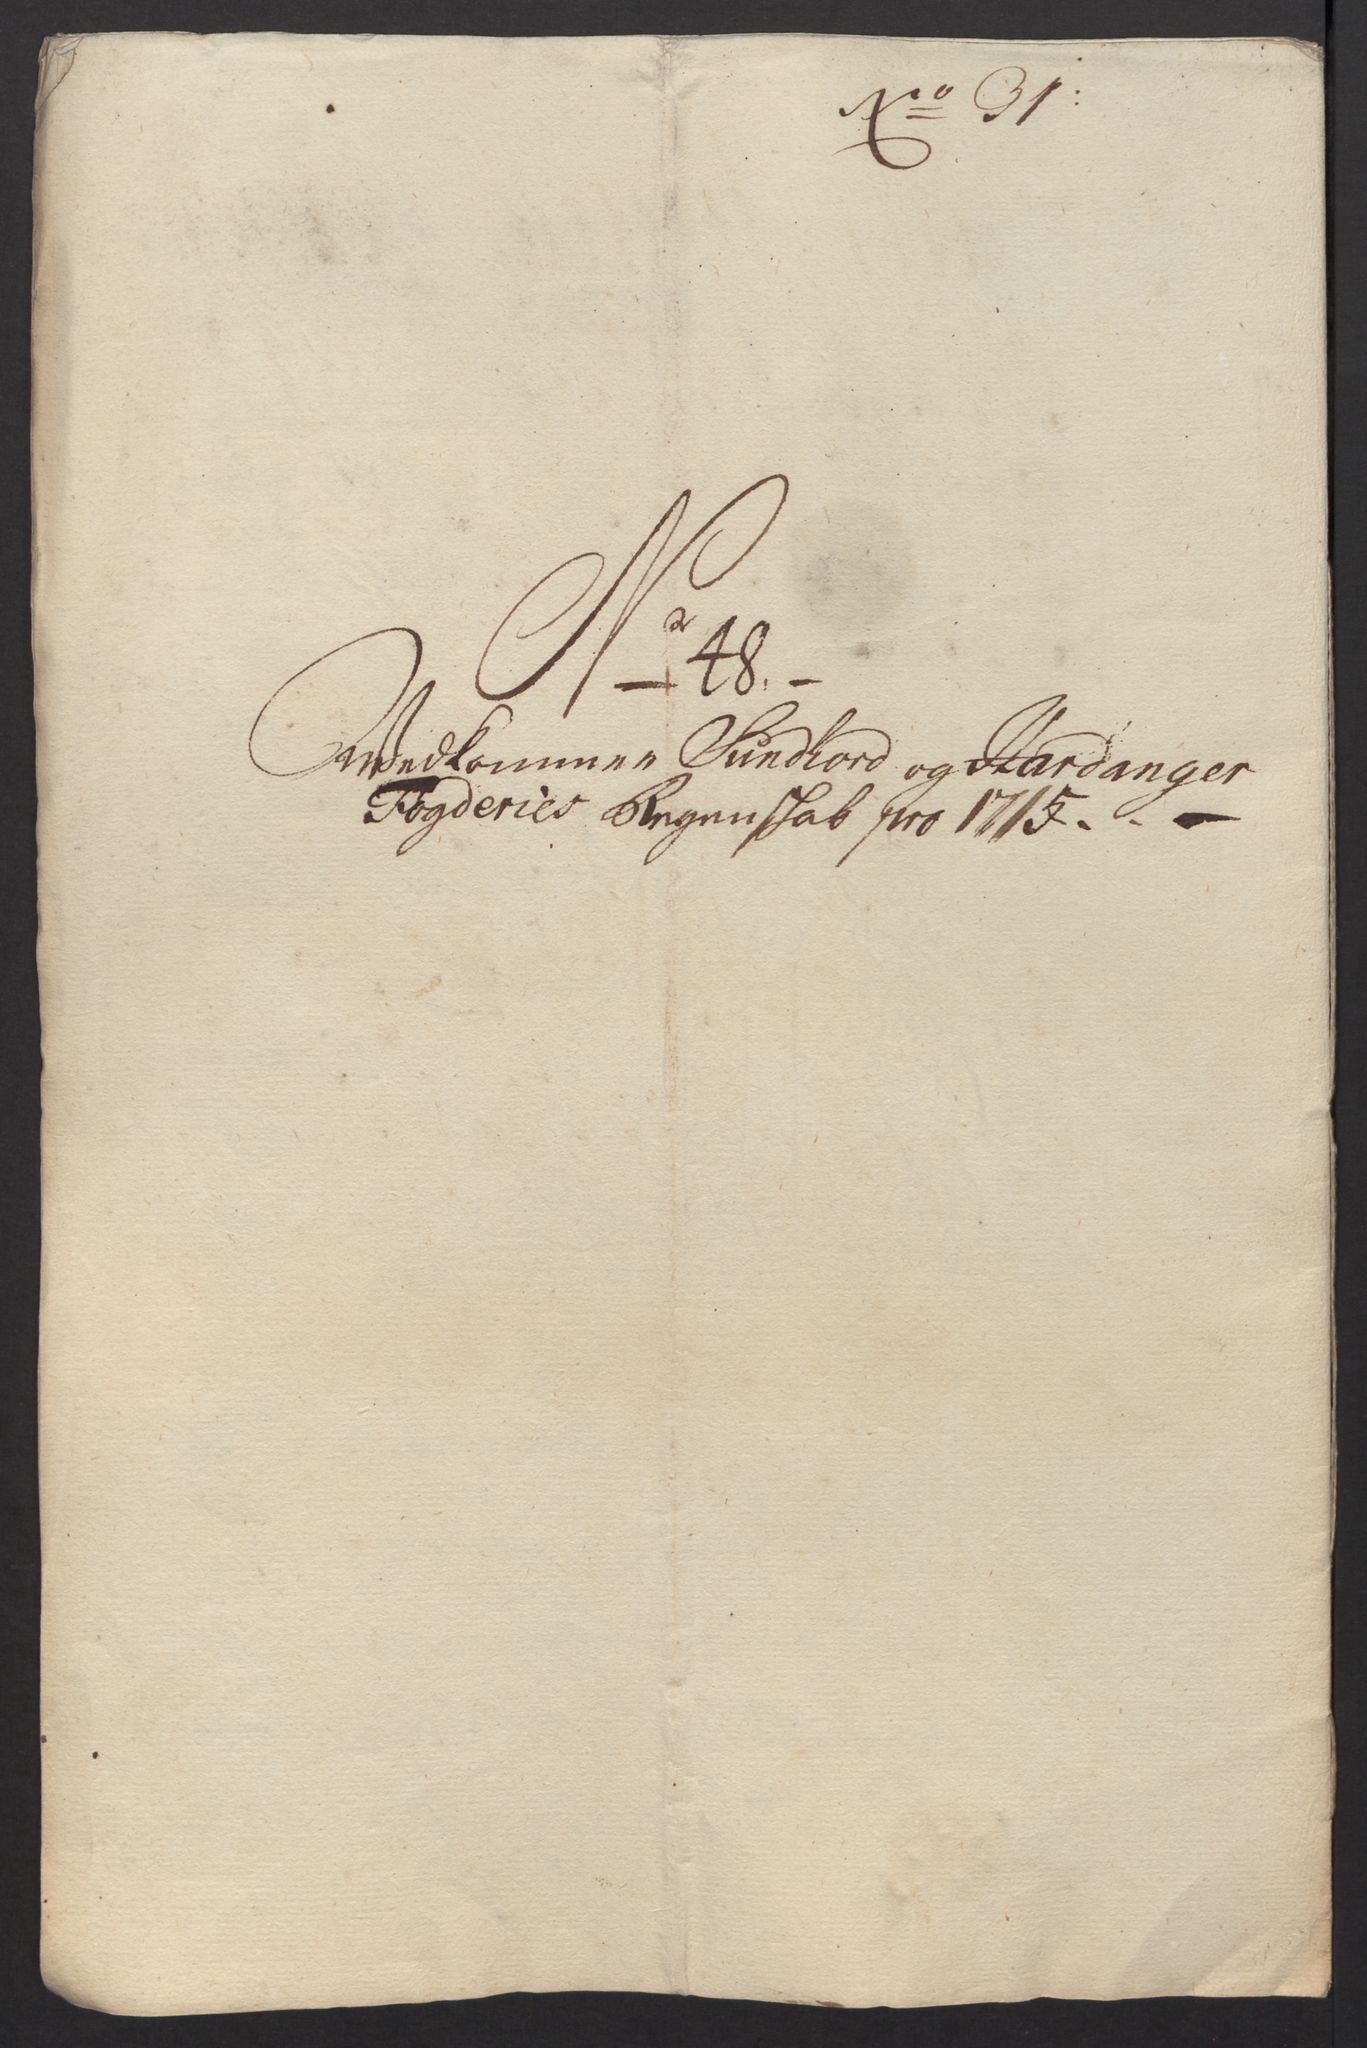 No 31:
Nr 48.
Wedkommer Sundhord og Hardanger
Fogderies Regenskab pro 1715.